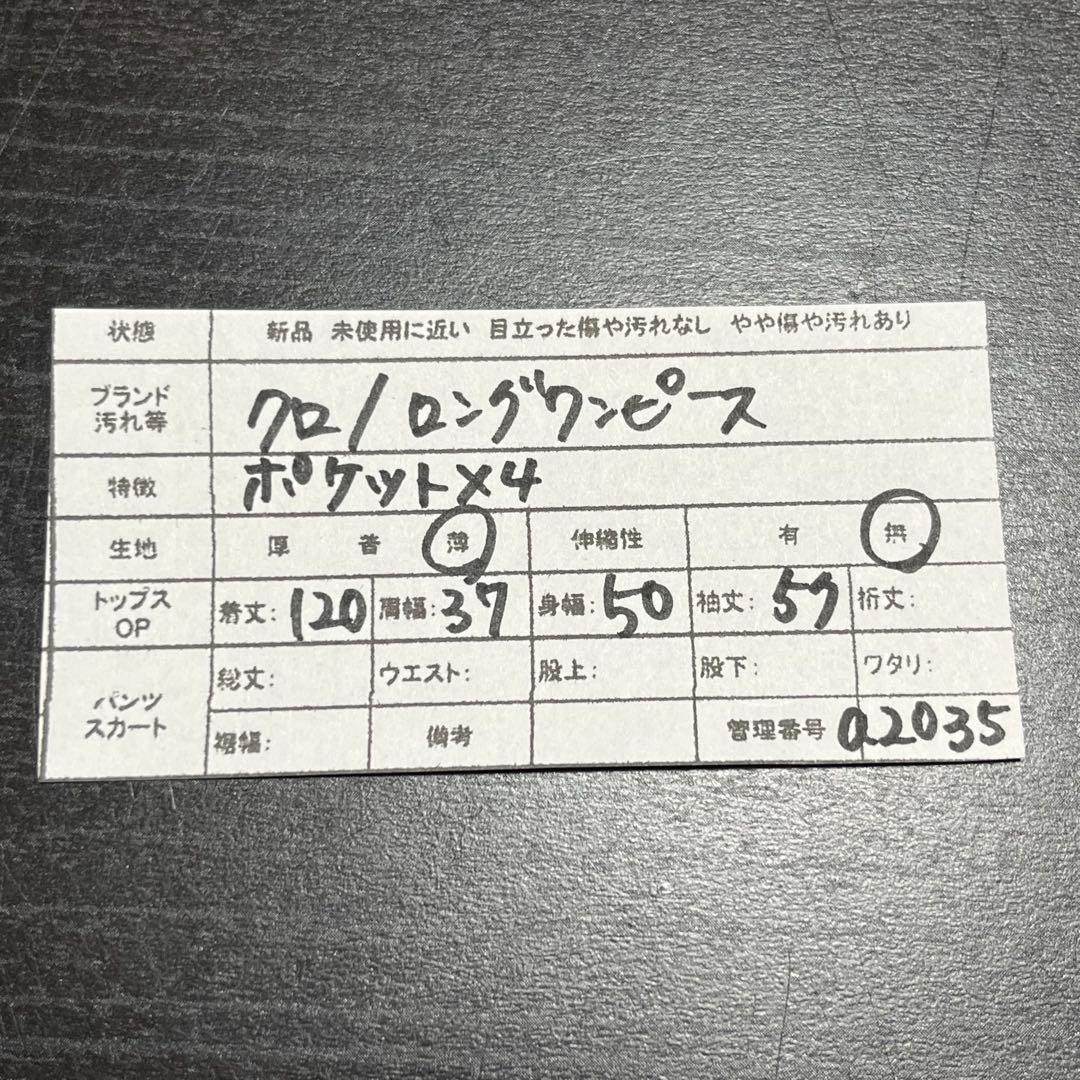 状態 新品 未使用に近い 目立った傷や汚れなし やや傷や汚れあり
ブランド
汚れ等
クロ/ロングワンピース
特徴 ポケット×4
生地 厚 普 薄 伸縮性 有 無
トップス
OP
着丈:120 肩幅:37 身幅:50 袖丈:59 裄丈:
パンツ
スカート
総丈: ウエスト: 股上: 股下: ワタリ:
裾幅: 備考 管理番号 a2035